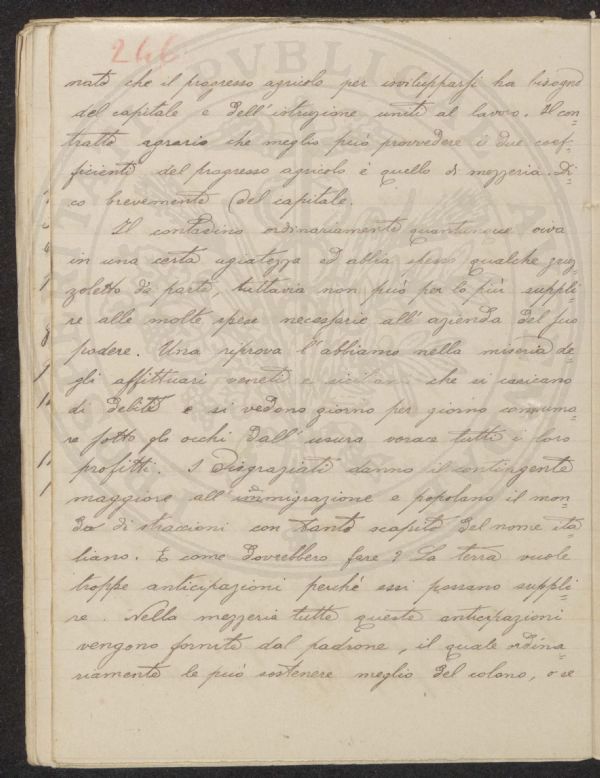 246
nato che il progresso agricolo per isvilupparsi ha bisogno
del capitale e dell'istruzione uniti al lavoro. Il con=
tratto agrario che meglio può provvedere i due coef=
ficienti del progresso agricolo è quello di mezzeria. Di=
co brevemente del capitale.
Il contadino ordinariamente quantunque viva
in una certa agiatezza ed abbia spesso qualche gruz=
zoletto da parte, tuttavia non può per lo più suppli=
re alle molte spese necessarie all'azienda del suo
podere. Una riprova l'abbiamo nella miseria de=
gli affittuari veneti e siciliani che si caricano
di debiti e si vedono giorno per giorno consuma=
re sotto gli occhi dall'usura vorace tutti i loro
profitti. I disgraziati danno il contingente
maggiore all'immigrazione e popolano il mon=
do di straccioni con tanto scapito del nome ita=
liano. E come dovrebbero fare? La terra vuole
troppe anticipazioni perché essi possano suppli=
re. Nella mezzeria tutte queste anticipazioni
vengono fornite dal padrone, il quale ordina=
riamente le può sostenere meglio del colono, o se